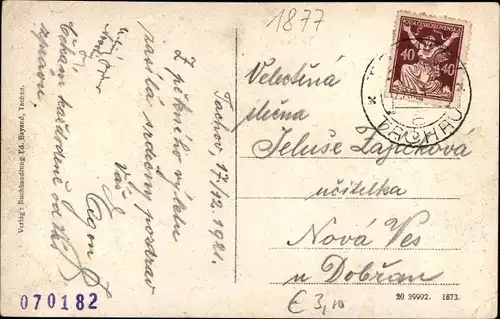 1877
POŠTA ČESKOSLOVENSKÁ
40 40
TACHAU
Tachov 17/12. 1921.
Z pěkného výletu
zasílá srdečný pozdrav
Váš
Egon
Čekám každodenně od Vás
zprávu.
Velectěná
slečna
Jeluše Zajíčková
učitelka
Nová Ves
u Dobřan
€ 3,
Verlag: Buchhandlung Ed. Bayand, Tachau.
070182
20 39992. 1873.